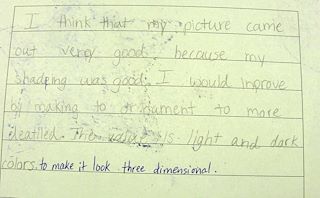 I think that my picture came
out very good because my
shadeing was good. I would improve
by making to ornament to more
deatlled. The value is light and dark
colors. to make it look three dimensional.